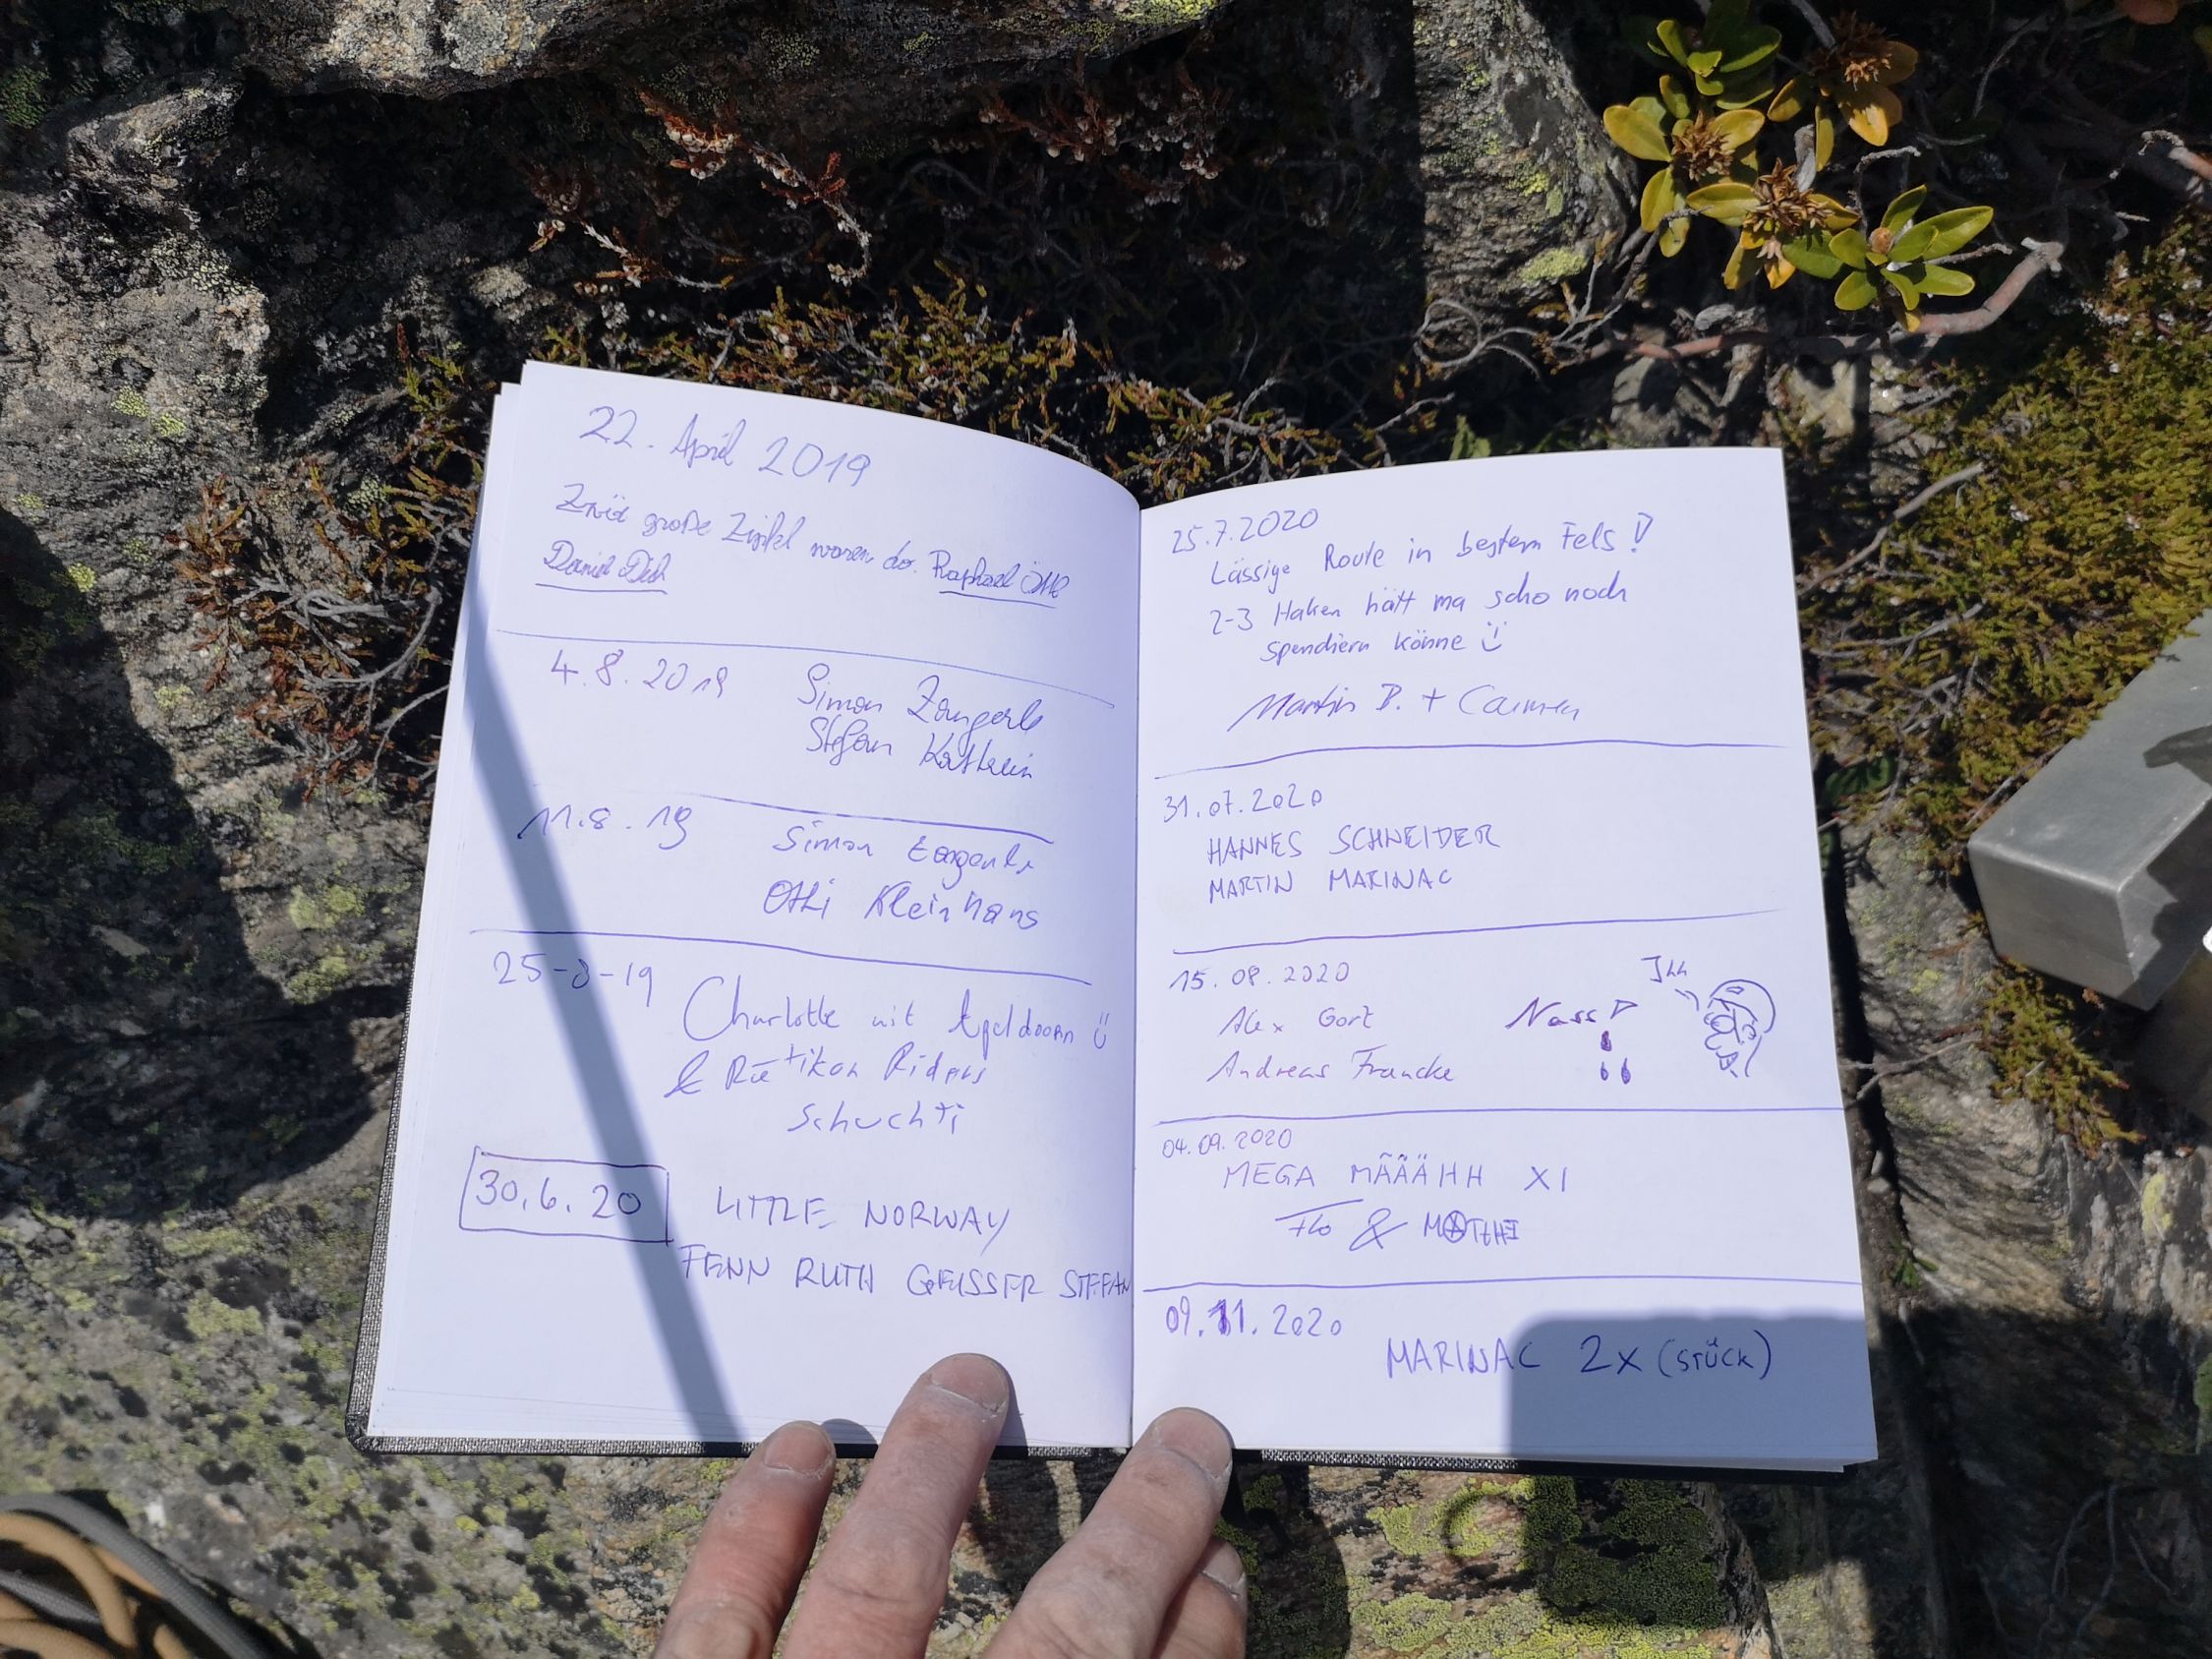 22. April 2019
große Zipfel waren do. Raphael
Daniel
4.8.2019
Simon Zangerle
Stefan Kathrein
11.8.19
Simon Zangerle
Otti Kleinhans
25-8-19
Charlotte mit Apeldoorn
& Rätikon Riders
Schuchti
30.6.20
LITTLE NORWAY
FENN RUTH GEISSER STEFAN
25.7.2020
Lässige Route in bestem Fels!
2-3 Haken hätt ma scho noch
spendiern könne
Martin B. + Carmen
31.07.2020
HANNES SCHNEIDER
MARTIN MARINAC
15.08.2020
Alex Gort
Andreas Francke
Nass!
04.09.2020
MEGA MÄÄÄHH XI
Flo & MATHI
09.11.2020
MARINAC 2x (STÜCK)